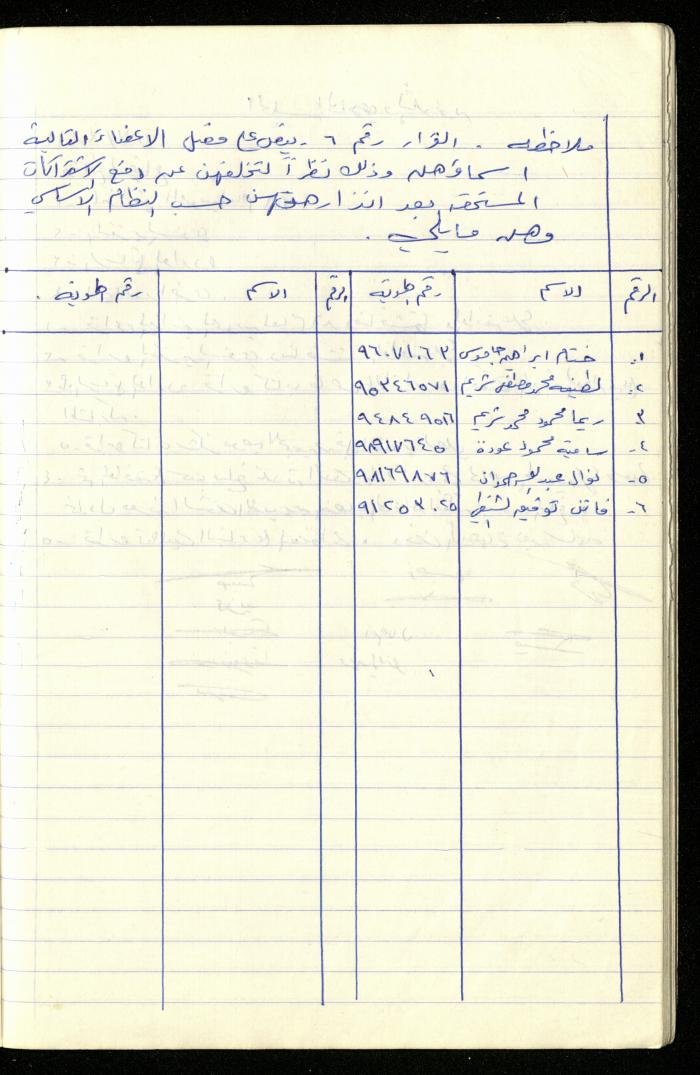 ملاحظه . القرار رقم ٦ . ينص على فصل الاعضاء التالية
اسماؤهن وذلك نظراً لتخلفهن عن دفع الاشتراكات
المستحقه بعد انذارهن حسب النظام الأساسي
وهن مايلي .
الرقم الاسم رقم الهوية الرقم الاسم رقم الهوية .
١- ختام ابراهيم جاموس ٩٦٠٧١٠٦٣
٢- لطيفه محمد مصطفى شريم ٩٥٣٤٦٥٧١
٣ ريما محمود محمد شريم ٩٤٨٤٩٥٦
٤- سامية محمود عودة ٩٨٩١٧٦٤٥
٥- نوال عبد ٩٨١٦٩٨٧٦
٦- فاتن توفيق ٩١٢٥٣٠٢٥